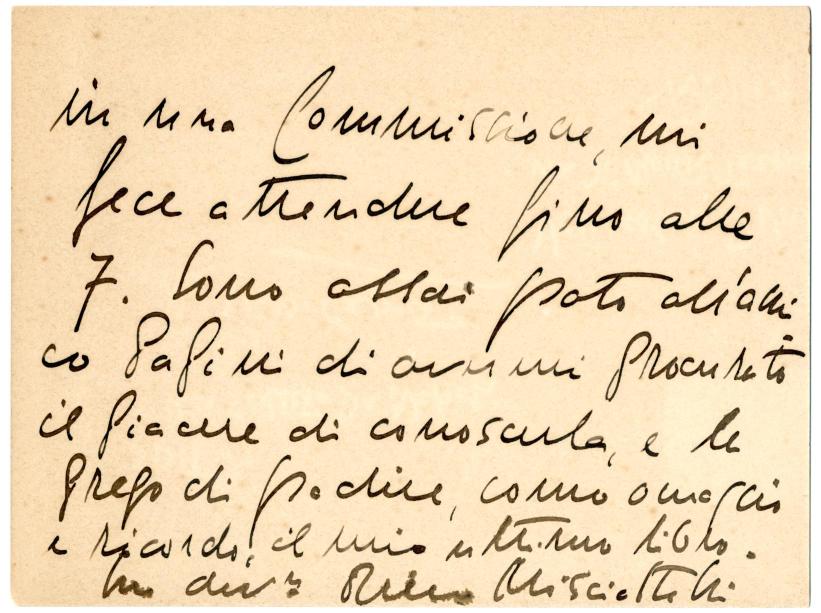 in una Commissione, mi
fece attendere fino alle
7. Sono assai grato all'ami
co Papini di avermi procurato
il piacere di conoscerla, e la
prego di gradire, come omaggio
e ricordo, il mio ultimo libro.
Misciattelli